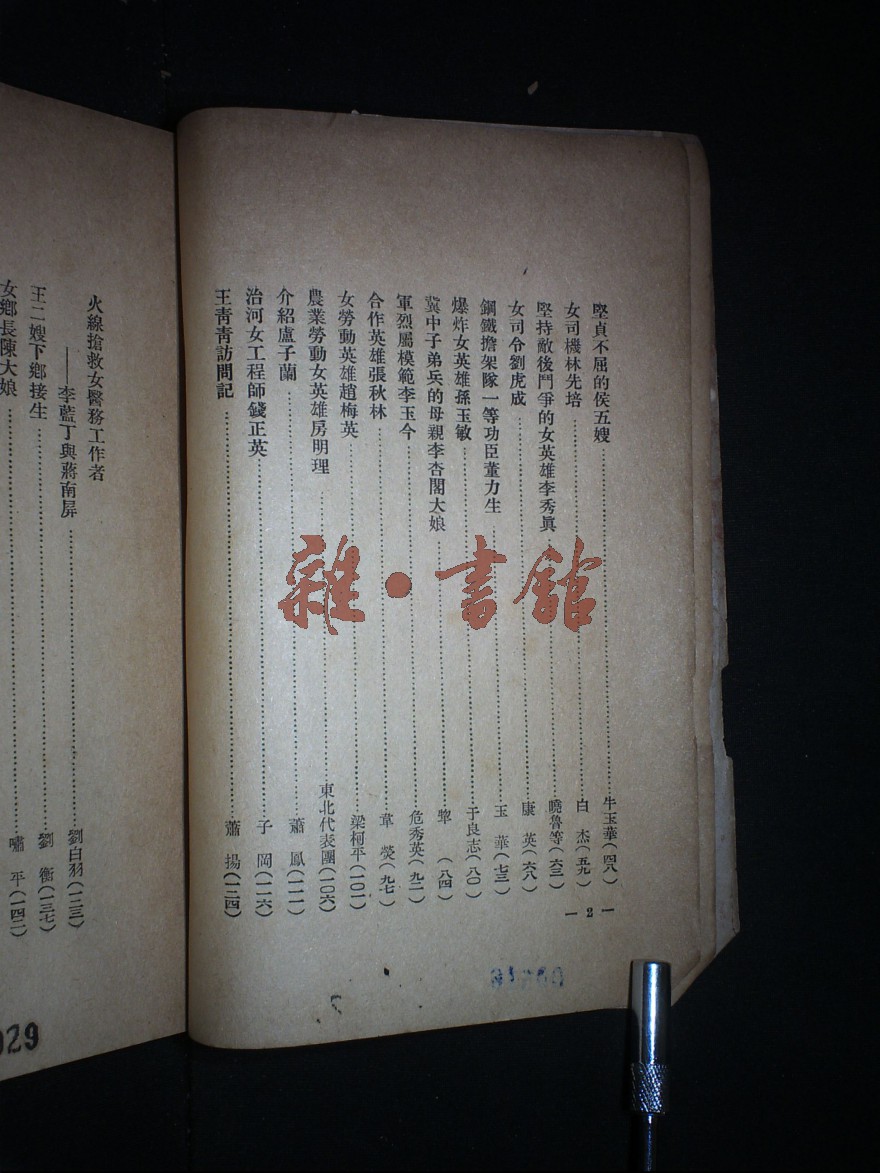 堅貞不屈的侯五嫂……牛玉華(四八)
女司機林先培……白 杰(五九)
堅持敵後鬥爭的女英雄李秀眞……曉魯等(六三)
女司令劉虎成……康 英(六八)
鋼鐵擔架隊一等功臣董力生……玉 華(七三)
爆炸女英雄孫玉敏……于良志(八〇)
冀中子弟兵的母親李杏閣大娘……(八四)
軍烈屬模範李玉今……危秀英(九二)
合作英雄張秋林……韋 熒(九七)
女勞動英雄趙梅英……梁柯平(一〇一)
農業勞動女英雄房明理……東北代表團(一〇六)
介紹盧子蘭……蕭 鳳(一一一)
治河女工程師錢正英……子 岡(一一六)
王靑靑訪問記……蕭 揚(一二四)
— 2 —
火線搶救女醫務工作者
——李藍丁與蔣南屏……劉白羽(一三三)
王二嫂下鄉接生……劉 衡(一三七)
女鄉長陳大娘……嘯 平(一四二)
雜·書館
029